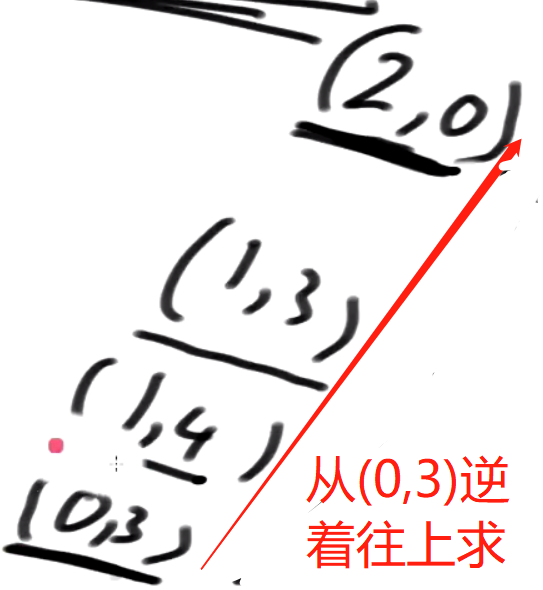 (2,0)
(1,3)
(1,4)
(0,3)
从(0,3)逆
着往上求